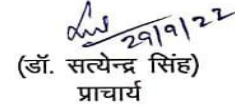 29/9/22
(डॉ. सत्येन्द्र सिंह)
प्राचार्य